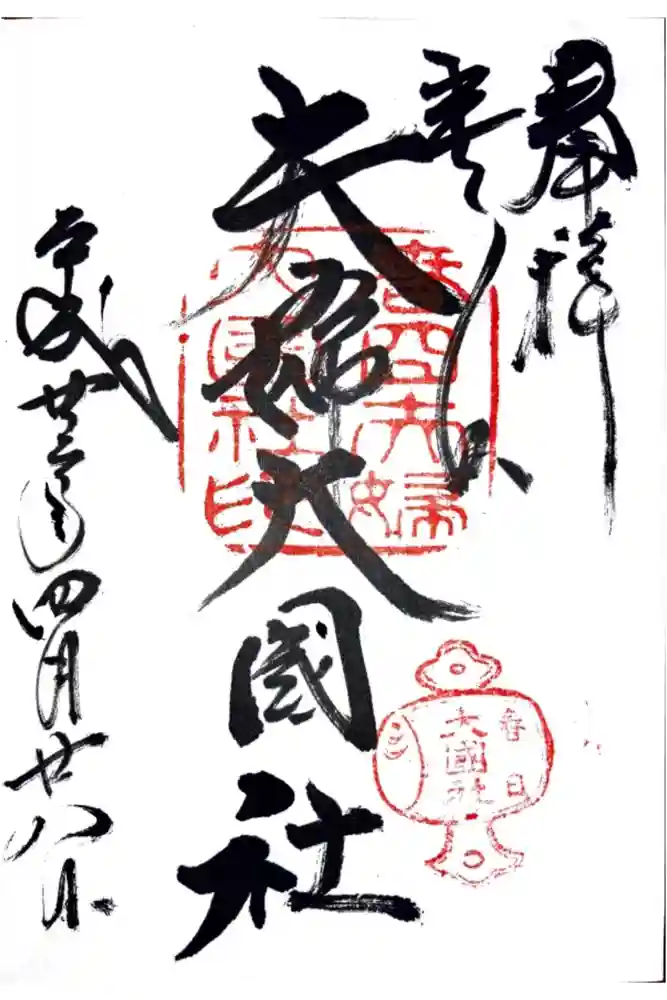 奉拝
春日
夫婦大國社
平成廿三年四月廿八日
春日夫婦
大國社印
春日
大國社